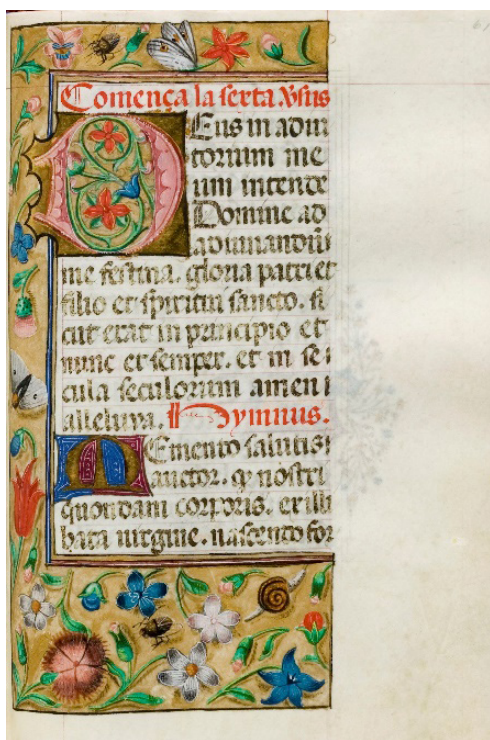 Comença la sexta v̄sus
Deus in adiu
torium me
um intende
Domine ad
adiuuandū
me festina. gloria patri et
filio et spiritui sancto. si
cut erat in principio et
nunc et semper. et in se
cula seculorum amen
alleluya. Hymnus.
Memento salutis
auctor. qͥ nostri
quondam corporis. ex illi
bata uirgine. nascendo for